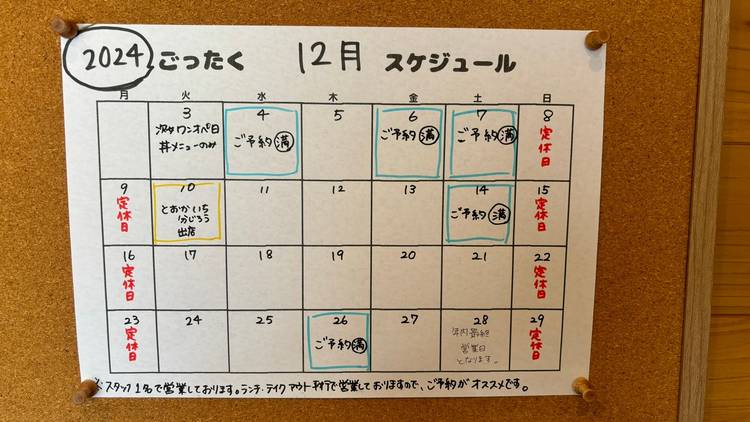 2024 ごったく 12月 スケジュール
月 火 水 木 金 土 日
3 4 5 6 7 8
次女ワンオペ日
丼メニューのみ
ご予約 満
ご予約 満
ご予約 満
定休日
9 10 11 12 13 14 15
定休日
とおかいち
分じろう
出店
ご予約 満
定休日
16 17 18 19 20 21 22
定休日
定休日
23 24 25 26 27 28 29
定休日
ご予約 満
年内最終
営業日
となります。
定休日
※スタッフ1名で営業しております。ランチ・テイクアウト予約で営業しておりますので、ご予約がオススメです。